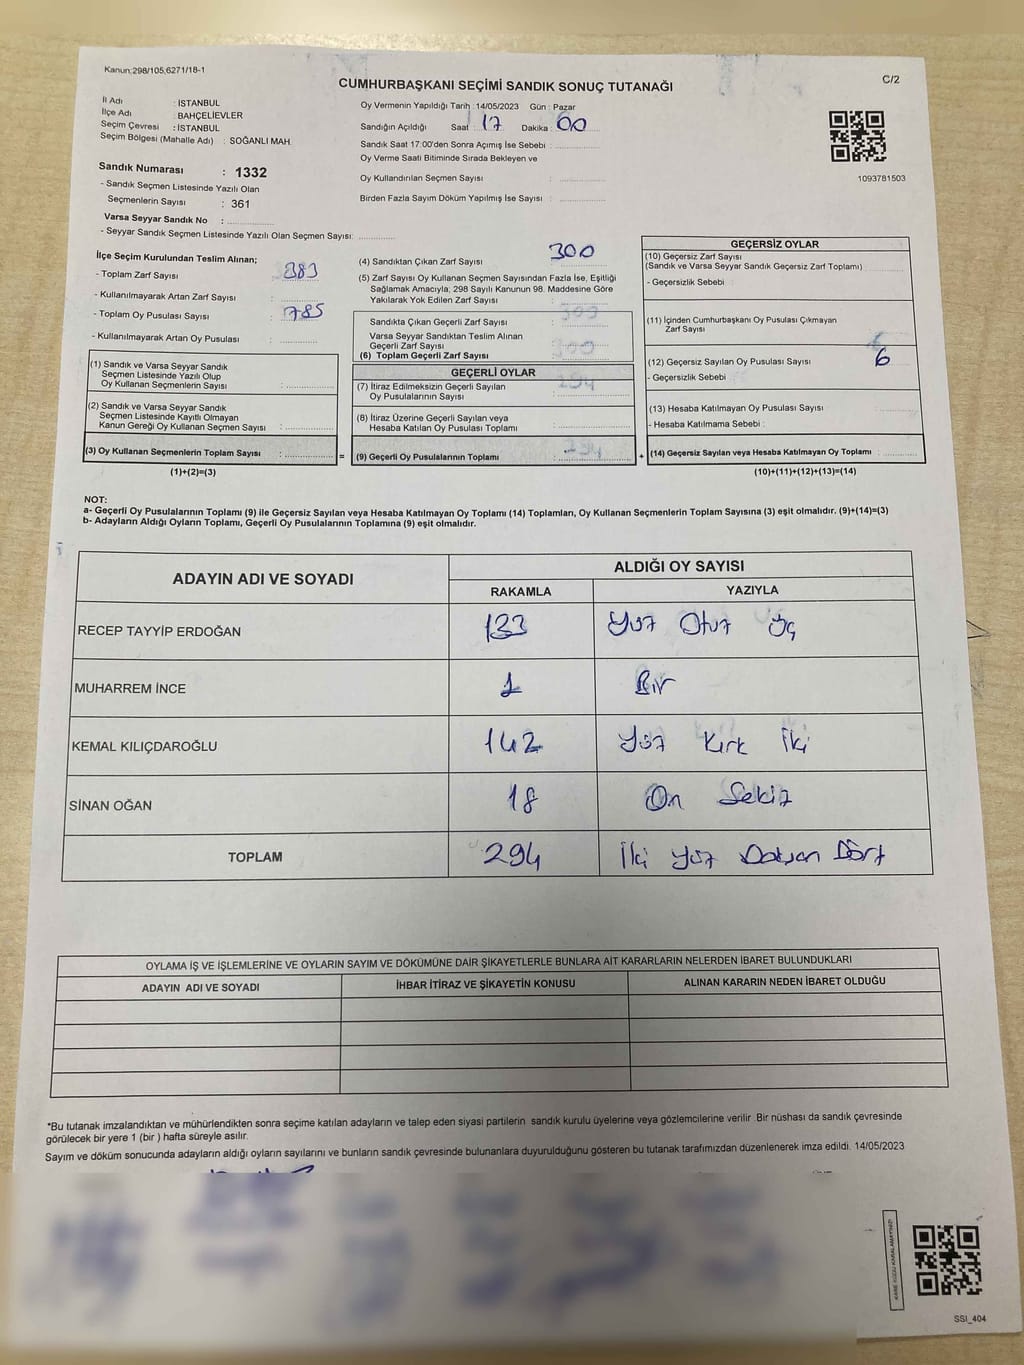 Kanun:298/105;6271/18-1
C/2
CUMHURBAŞKANI SEÇİMİ SANDIK SONUÇ TUTANAĞI
İl Adı : İSTANBUL
İlçe Adı : BAHÇELİEVLER
Seçim Çevresi : İSTANBUL
Seçim Bölgesi (Mahalle Adı) : SOĞANLI MAH.
Oy Vermenin Yapıldığı Tarih : 14/05/2023 Gün : Pazar
Sandığın Açıldığı Saat 17 Dakika : 00
Sandık Saat 17:00'den Sonra Açımış İse Sebebi :
Oy Verme Saati Bitiminde Sırada Bekleyen ve
Oy Kullandırılan Seçmen Sayısı :
Birden Fazla Sayım Döküm Yapılmış İse Sayısı :
1093781503
Sandık Numarası : 1332
- Sandık Seçmen Listesinde Yazılı Olan
Seçmenlerin Sayısı : 361
Varsa Seyyar Sandık No :
- Seyyar Sandık Seçmen Listesinde Yazılı Olan Seçmen Sayısı:
İlçe Seçim Kurulundan Teslim Alınan;
- Toplam Zarf Sayısı : 383
- Kullanılmayarak Artan Zarf Sayısı :
- Toplam Oy Pusulası Sayısı : 785
- Kullanılmayarak Artan Oy Pusulası :
(1) Sandık ve Varsa Seyyar Sandık
Seçmen Listesinde Yazılı Olup
Oy Kullanan Seçmenlerin Sayısı :
(2) Sandık ve Varsa Seyyar Sandık
Seçmen Listesinde Kayıtlı Olmayan
Kanun Gereği Oy Kullanan Seçmen Sayısı :
(3) Oy Kullanan Seçmenlerin Toplam Sayısı :
(1)+(2)=(3)
(4) Sandıktan Çıkan Zarf Sayısı : 300
(5) Zarf Sayısı Oy Kullanan Seçmen Sayısından Fazla İse, Eşitliği
Sağlamak Amacıyla; 298 Sayılı Kanunun 98. Maddesine Göre
Yakılarak Yok Edilen Zarf Sayısı :
Sandıkta Çıkan Geçerli Zarf Sayısı : 300
Varsa Seyyar Sandıktan Teslim Alınan
Geçerli Zarf Sayısı :
(6) Toplam Geçerli Zarf Sayısı : 300
GEÇERLİ OYLAR
(7) İtiraz Edilmeksizin Geçerli Sayılan
Oy Pusulalarının Sayısı : 294
(8) İtiraz Üzerine Geçerli Sayılan veya
Hesaba Katılan Oy Pusulası Toplamı :
= (9) Geçerli Oy Pusulalarının Toplamı : 294
GEÇERSİZ OYLAR
(10) Geçersiz Zarf Sayısı
(Sandık ve Varsa Seyyar Sandık Geçersiz Zarf Toplamı)
- Geçersizlik Sebebi :
(11) İçinden Cumhurbaşkanı Oy Pusulası Çıkmayan
Zarf Sayısı
(12) Geçersiz Sayılan Oy Pusulası Sayısı : 6
- Geçersizlik Sebebi :
(13) Hesaba Katılmayan Oy Pusulası Sayısı
- Hesaba Katılmama Sebebi :
+ (14) Geçersiz Sayılan veya Hesaba Katılmayan Oy Toplamı :
(10)+(11)+(12)+(13)=(14)
NOT:
a- Geçerli Oy Pusulalarının Toplamı (9) ile Geçersiz Sayılan veya Hesaba Katılmayan Oy Toplamı (14) Toplamları, Oy Kullanan Seçmenlerin Toplam Sayısına (3) eşit olmalıdır. (9)+(14)=(3)
b- Adayların Aldığı Oyların Toplamı, Geçerli Oy Pusulalarının Toplamına (9) eşit olmalıdır.
ADAYIN ADI VE SOYADI
ALDIĞI OY SAYISI
RAKAMLA YAZIYLA
RECEP TAYYİP ERDOĞAN 133 Yüz Otuz Üç
MUHARREM İNCE 1 Bir
KEMAL KILIÇDAROĞLU 142 Yüz Kırk İki
SİNAN OĞAN 18 On Sekiz
TOPLAM 294 İki Yüz Doksan Dört
OYLAMA İŞ VE İŞLEMLERİNE VE OYLARIN SAYIM VE DÖKÜMÜNE DAİR ŞİKAYETLERLE BUNLARA AİT KARARLARIN NELERDEN İBARET BULUNDUKLARI
ADAYIN ADI VE SOYADI İHBAR İTİRAZ VE ŞİKAYETİN KONUSU ALINAN KARARIN NEDEN İBARET OLDUĞU
*Bu tutanak imzalandıktan ve mühürlendikten sonra seçime katılan adayların ve talep eden siyasi partilerin sandık kurulu üyelerine veya gözlemcilerine verilir. Bir nüshası da sandık çevresinde
görülecek bir yere 1 (bir ) hafta süreyle asılır.
Sayım ve döküm sonucunda adayların aldığı oyların sayılarını ve bunların sandık çevresinde bulunanlara duyurulduğunu gösteren bu tutanak tarafımızdan düzenlenerek imza edildi. 14/05/2023
KARE KODU KARALAMAYINIZ!
SSI_404